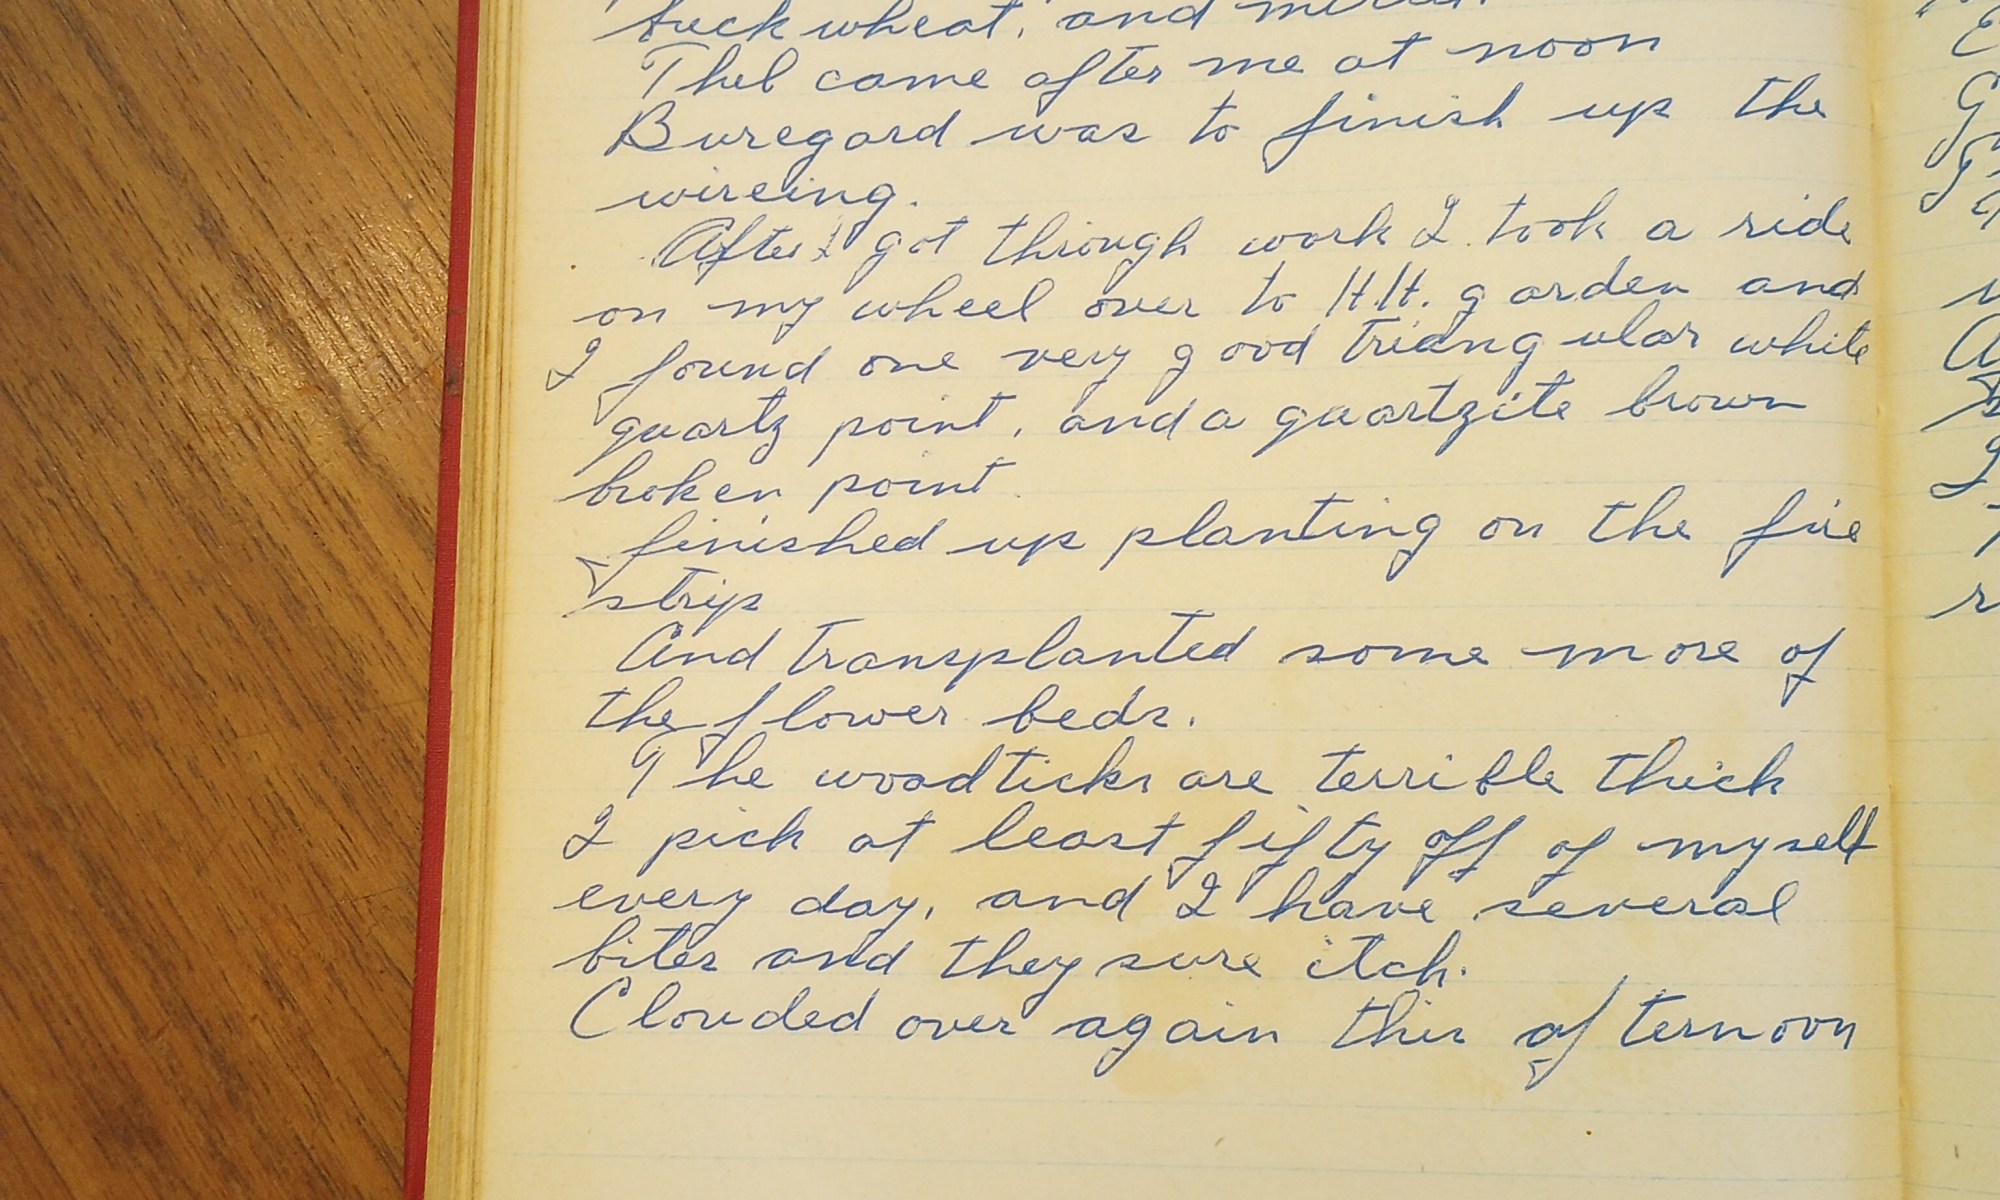 buckwheat, and
Thel came after me at noon
Buregard was to finish up the
wireing.
After I got through work I took a ride
on my wheel over to H.H. garden and
I found one very good triangular white
quartz point, and a quartzite brown
broken point
finished up planting on the fire
strip
And transplanted some more of
the flower beds.
The woodticks are terrible thick
I pick at least fifty off of myself
every day, and I have several
bites and they sure itch.
Clouded over again this afternoon